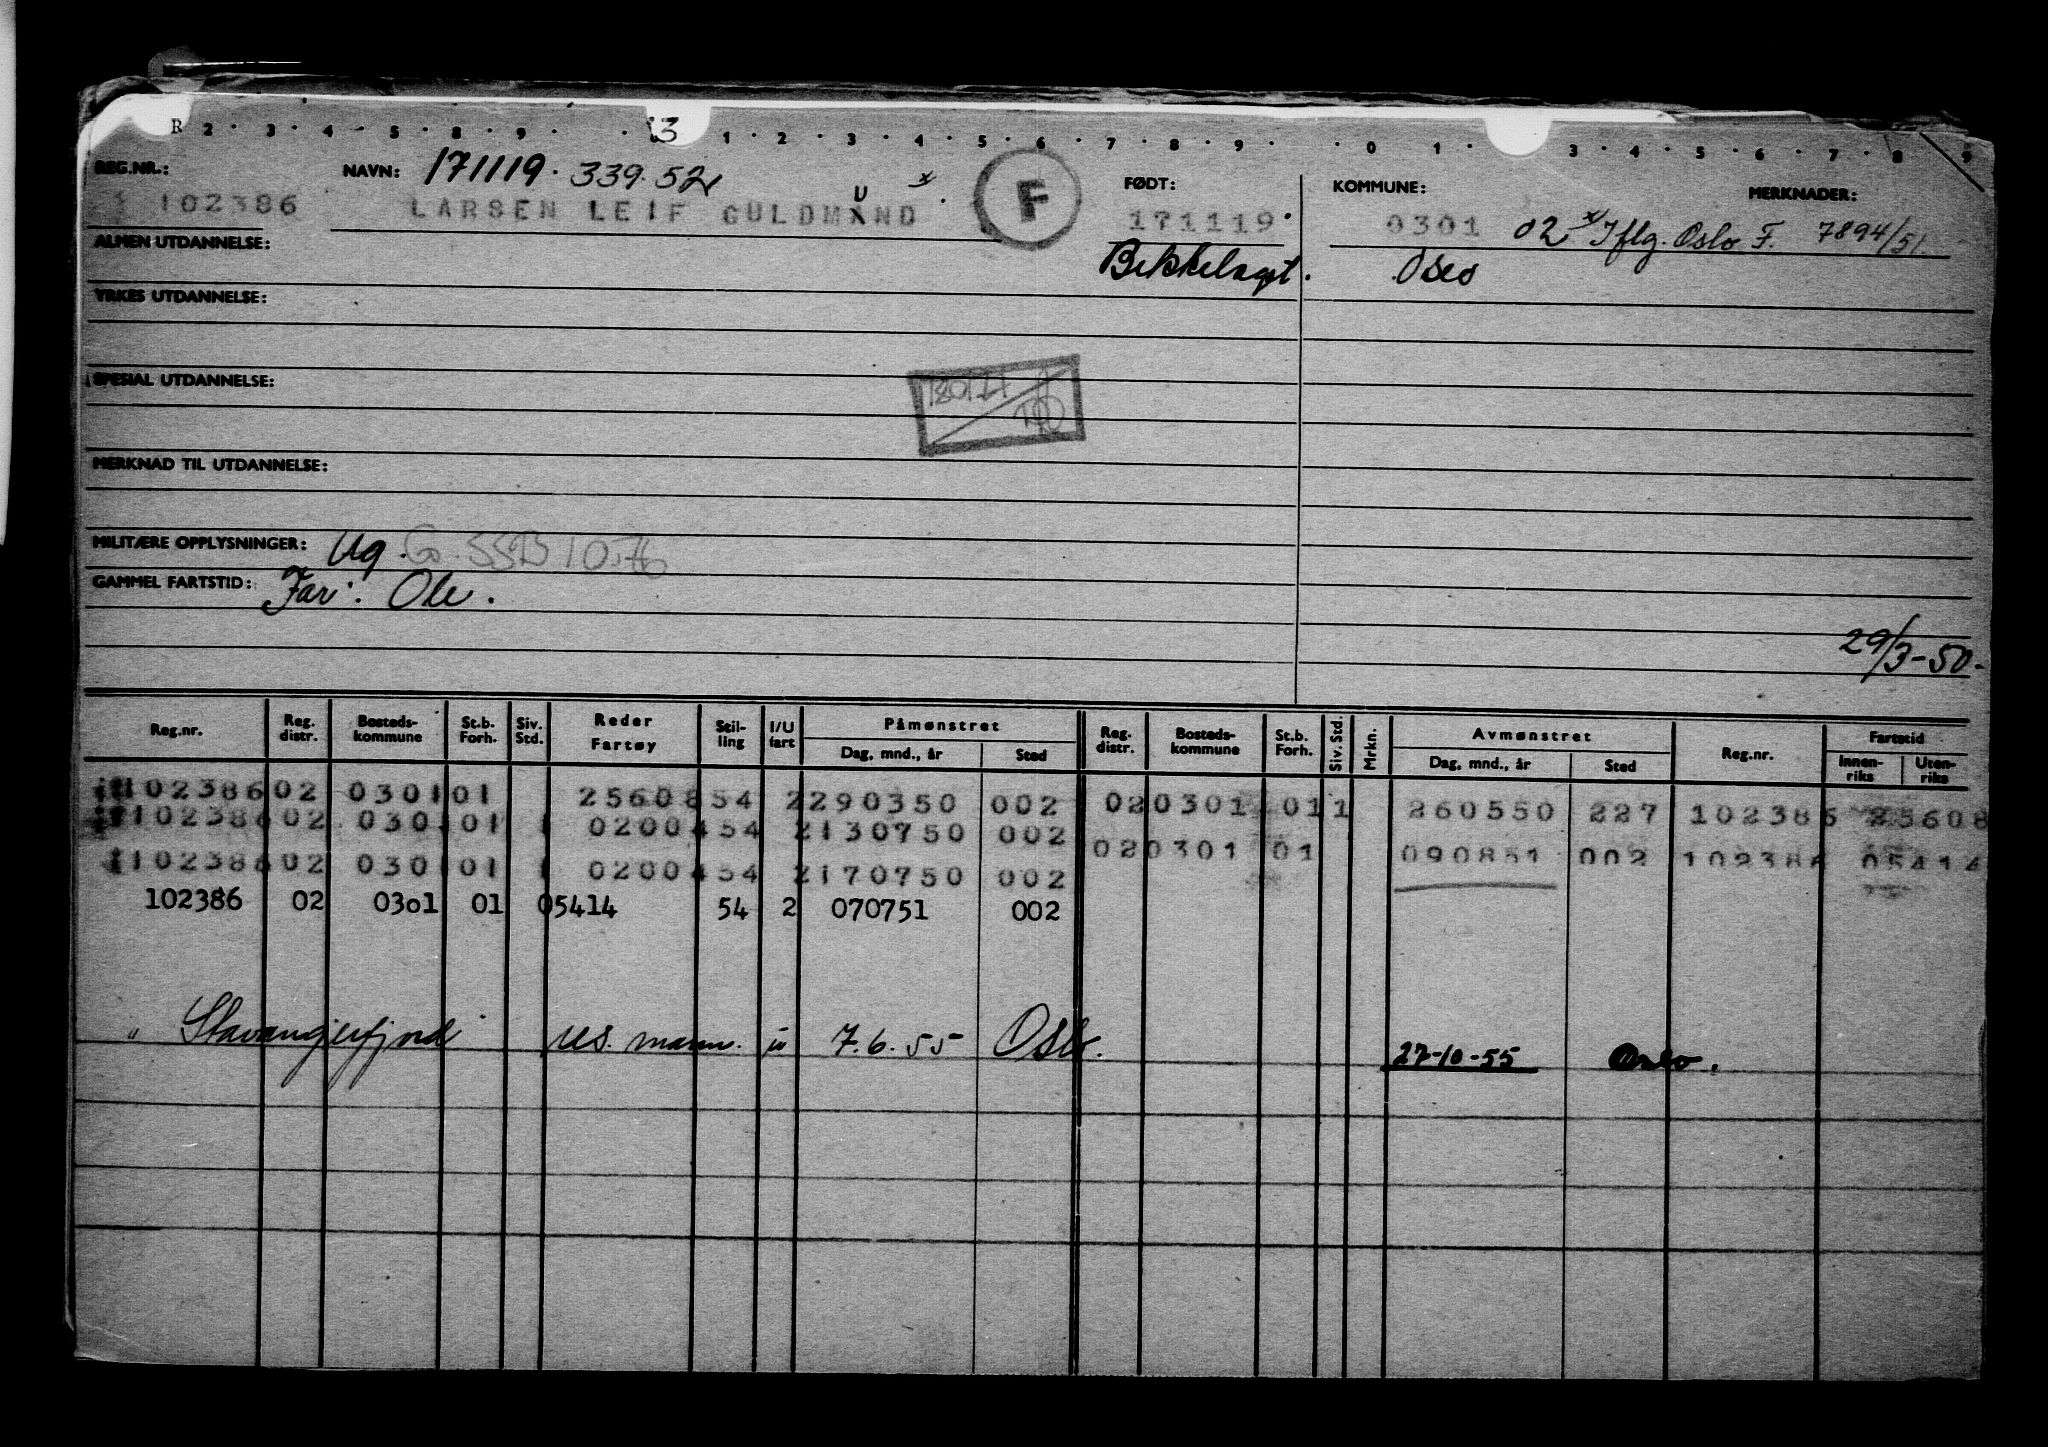 R 2 · 3 · 4 · 5 · 8 · 9 · · 3 · 1 · 2 · 3 · 4 · 5 · 6 · 7 · 8 · 9 · · 0 · 1 · 3 · 4 · 5 · 6 · 7 · 8 · 9
REG.NR.: NAVN: 171119. 339.52 FØDT: KOMMUNE: MERKNADER:
102386 LARSEN LEIF GULDMAND x F 171119. 0301 02 x Iflg. Oslo F. 7894/51.
U
ALMEN UTDANNELSE: Bekkelaget. Oslo
YRKES UTDANNELSE:
SPESIAL UTDANNELSE:
MERKNAD TIL UTDANNELSE:
MILITÆRE OPPLYSNINGER: Ug.
GAMMEL FARTSTID: Far: Ole.
29/3-50.
Reg.nr. Reg. distr. Bosteds-kommune St.b. Forh. Siv. Std. Reder Fartøy Stil-ling I/U fart Påmønstret Dag, mnd., år Sted Reg. distr. Bosteds-kommune St.b. Forh. Siv. Std. Mrkn. Avmønstret Dag, mnd., år Sted Reg.nr. Fartstid Innen-riks Uten-riks
102386 02 0301 01 25608 54 2 290350 002 02 0301 01 1 260550 227 102386 25608
102386 02 0301 01 1 02004 54 2 130750 002
02 0301 01 090851 002 102386 05414
102386 02 0301 01 1 02004 54 2 170750 002
102386 02 03o1 01 05414 54 2 070751 002
" Stavangerfjord " res. mann. u 7.6.55 Oslo. 27-10-55 Oslo.